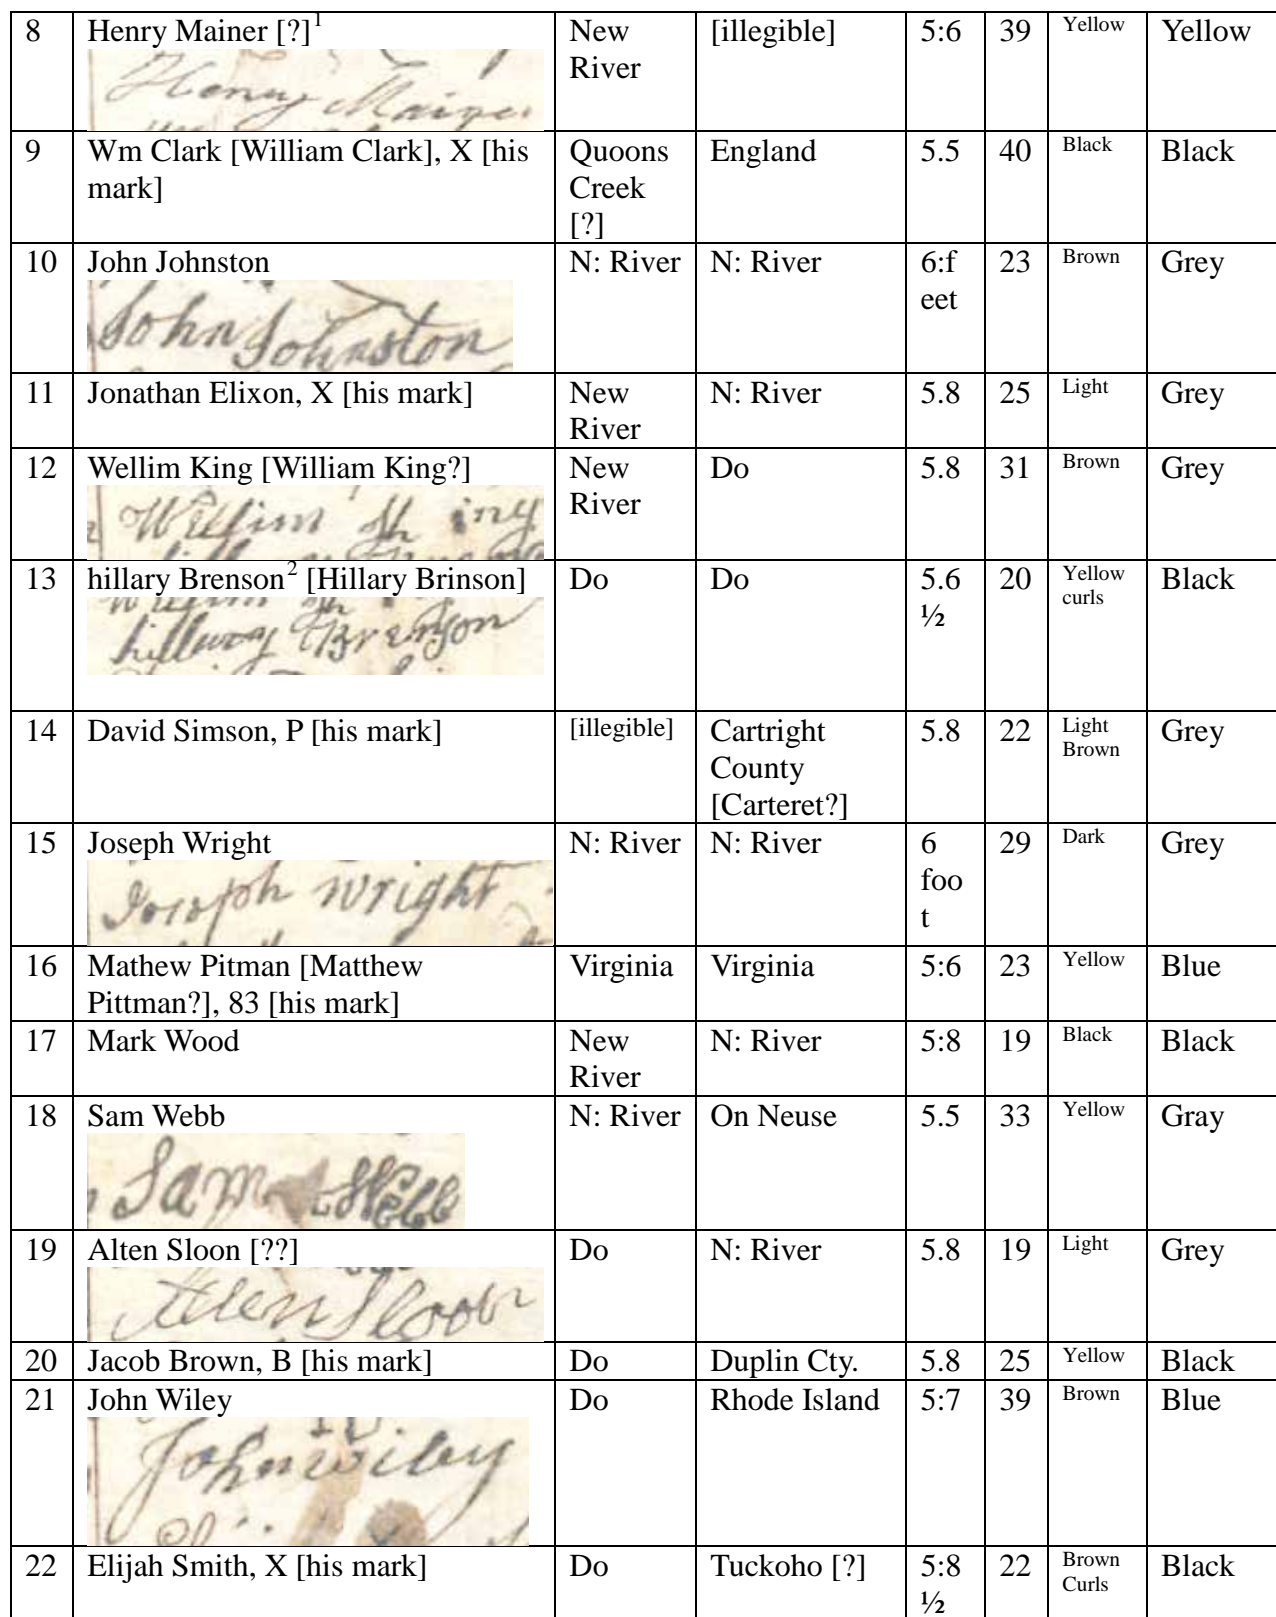 8 Henry Mainer [?]1 New River [illegible] 5:6 39 Yellow Yellow
Henry Mainer
9 Wm Clark [William Clark], X [his mark] Quoons Creek [?] England 5.5 40 Black Black
10 John Johnston N: River N: River 6:feet 23 Brown Grey
John Johnston
11 Jonathan Elixon, X [his mark] New River N: River 5.8 25 Light Grey
12 Wellim King [William King?] New River Do 5.8 31 Brown Grey
Willim King
13 hillary Brenson2 [Hillary Brinson] Do Do 5.6 ½ 20 Yellow curls Black
hillary Brenson
14 David Simson, P [his mark] [illegible] Cartright County [Carteret?] 5.8 22 Light Brown Grey
15 Joseph Wright N: River N: River 6 foot 29 Dark Grey
Joseph Wright
16 Mathew Pitman [Matthew Pittman?], 83 [his mark] Virginia Virginia 5:6 23 Yellow Blue
17 Mark Wood New River N: River 5:8 19 Black Black
18 Sam Webb N: River On Neuse 5.5 33 Yellow Gray
Sam Webb
19 Alten Sloon [??] Do N: River 5.8 19 Light Grey
20 Jacob Brown, B [his mark] Do Duplin Cty. 5.8 25 Yellow Black
21 John Wiley Do Rhode Island 5:7 39 Brown Blue
John Wiley
22 Elijah Smith, X [his mark] Do Tuckoho [?] 5:8 ½ 22 Brown Curls Black